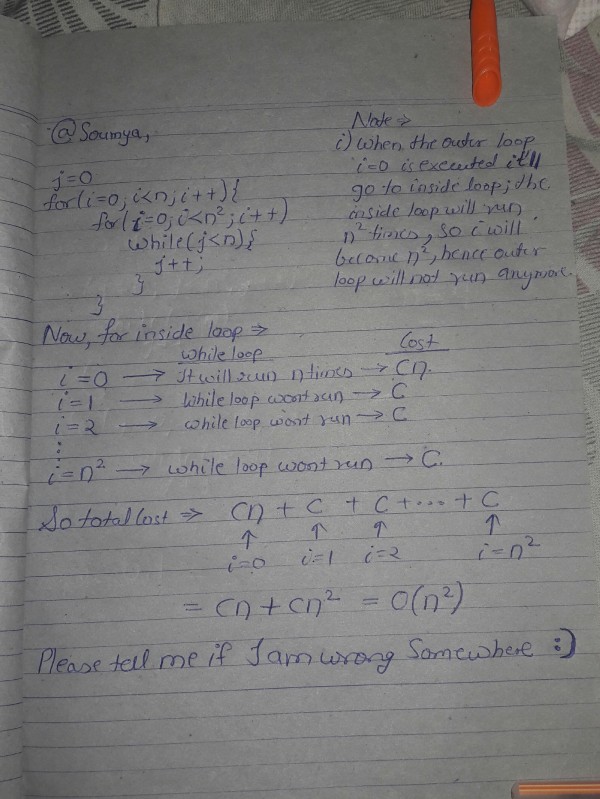 @Soumya,
j=0
for(i=0; i<n; i++){
for(i=0; i<n²; i++)
while(j<n){
j++;
}
}
Note ⇒
i) When the outer loop
i=0 is executed it'll
go to inside loop; the
inside loop will run
n² times, so i will
become n², hence outer
loop will not run anymore.
Now, for inside loop ⇒
while loop Cost
i=0 → It will run n times → Cn.
i=1 → While loop wont run → C
i=2 → while loop wont run → C
⋮
i=n² → while loop wont run → C.
So total cost ⇒ Cn + C + C + ... + C
↑ ↑ ↑ ↑
i=0 i=1 i=2 i=n²
= Cn + Cn² = O(n²)
Please tell me if I am wrong Somewhere :)